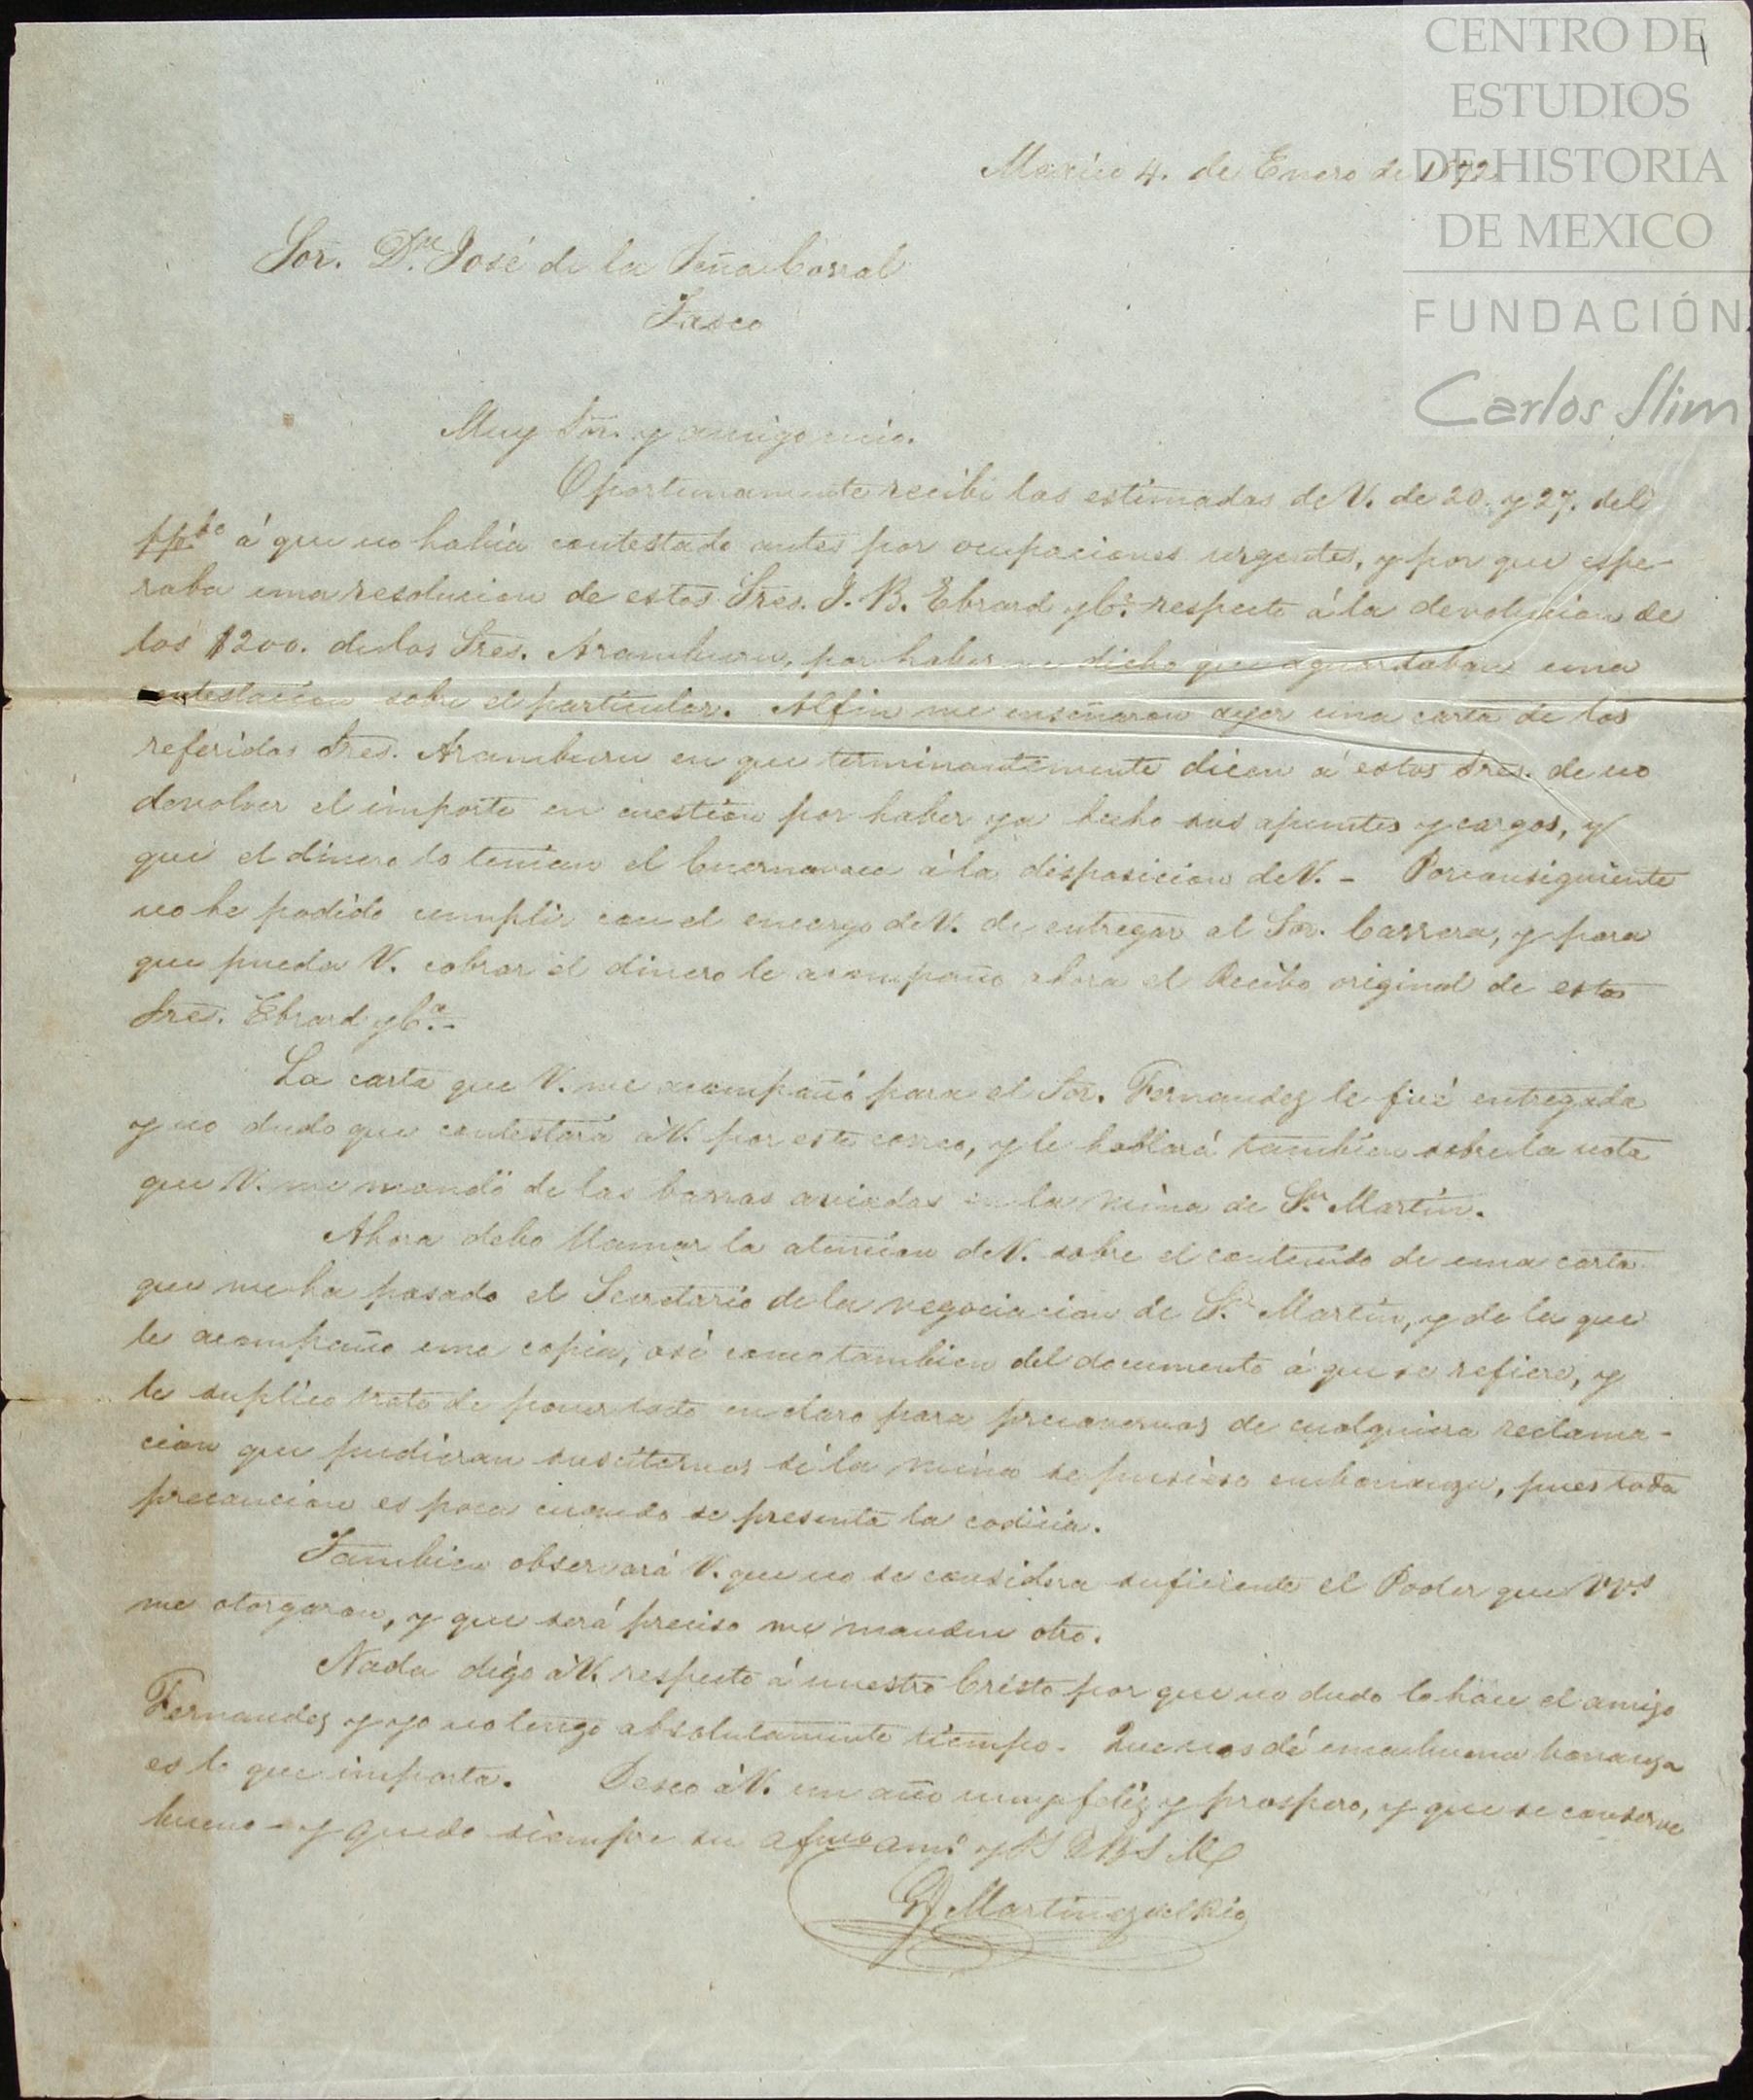 CENTRO DE
ESTUDIOS
DE HISTORIA
DE MEXICO
FUNDACIÓN
Carlos Slim
Mexico 4. de Enero de 1872
Sor. Dn. José de la Peña Corral
Tasco
Muy Sor. y amigo mio.
Oportunamente recibi las estimadas de V. de 20. y 27. del
pp.do á que no habia contestado antes por ocupaciones urgentes, y por que espe-
raba una resolucion de estos Sres. J. B. Ebrard y Ca. respecto á la devolucion de
los $200. de los Sres. Aramburu, por haberme dicho que aguardaban una
contestacion sobre el particular. Al fin me enseñaron ayer una carta de los
referidos Sres. Aramburu en que terminantemente dicen á estos Sres. de no
devolver el importe en cuestion por haber ya hecho sus apuntes y cargos, y
que el dinero lo tenian el Cuernavaca á la disposicion de V. - Por consiguiente
no he podido cumplir con el encargo de V. de entregar al Sor. Carrera, y para
que pueda V. cobrar el dinero le acompaño ahora el Recibo original de estos
Sres. Ebrard y Ca. -
La carta que V. me acompañó para el Sor. Fernandez le fué entregada
y no dudo que contestará á V. por este correo, y le hablará tambien sobre la nota
que V. me mandó de las barras aviadas en la mina de Sn. Martin.
Ahora debo llamar la atencion de V. sobre el contenido de una carta
que me ha pasado el Secretario de la negociacion de Sn. Martin, y de la que
le acompaño una copia, asi como tambien del documento á que se refiere, y
le suplico trate de poner todo en claro para precavernos de cualquiera reclama-
cion que pudieran suscitarnos si la mina se pusiese en bonanza, pues toda
precaucion es poca cuando se presenta la codicia.
Tambien observará V. que no se considera suficiente el Poder que VVs.
me otorgaron, y que será preciso me manden otro.
Nada digo á V. respecto á nuestro Cristo por que no dudo lo hace el amigo
Fernandez y yo no tengo absolutamente tiempo. Que nos dé una buena bonanza
es lo que importa. Deseo á V. un año muy feliz y prospero, y que se conserve
bueno - y quedo siempre su afmo. amo. y S Q B S M
Martinez del Rio